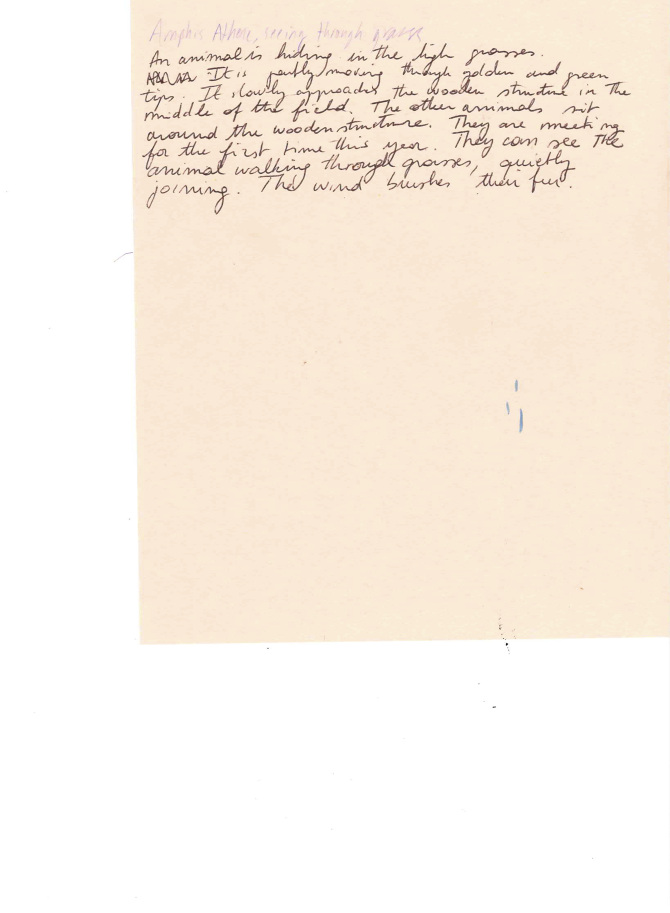 seeing through grasses
An animal is hiding in the high grasses.
It is gently moving through golden and green
tips. It slowly approaches the wooden structure in the
middle of the field. The other animals sit
around the wooden structure. They are meeting
for the first time this year. They can see the
animal walking through grasses, quietly
joining. The wind brushes their fur.